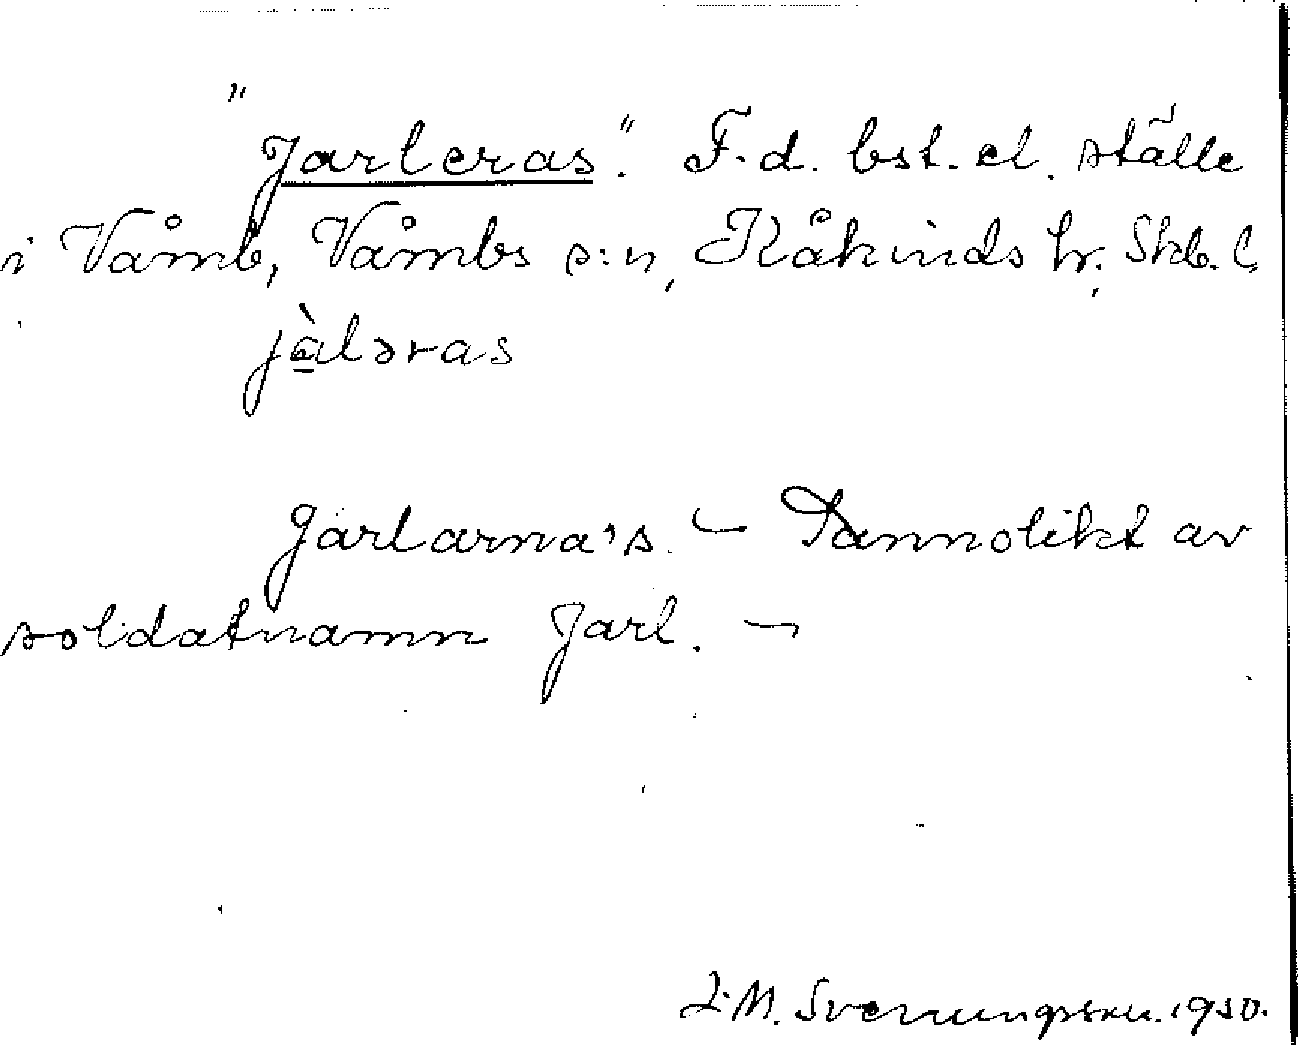 "Jarleras". F.d. bst. el. ställe
i Våmb, Våmbs s:n, Kåkinds hr. Skb. l.
jàləras
Jarlarna's. – Sannolikt av
soldatnamn Jarl. –
L.M. Svenungsson. 1930.